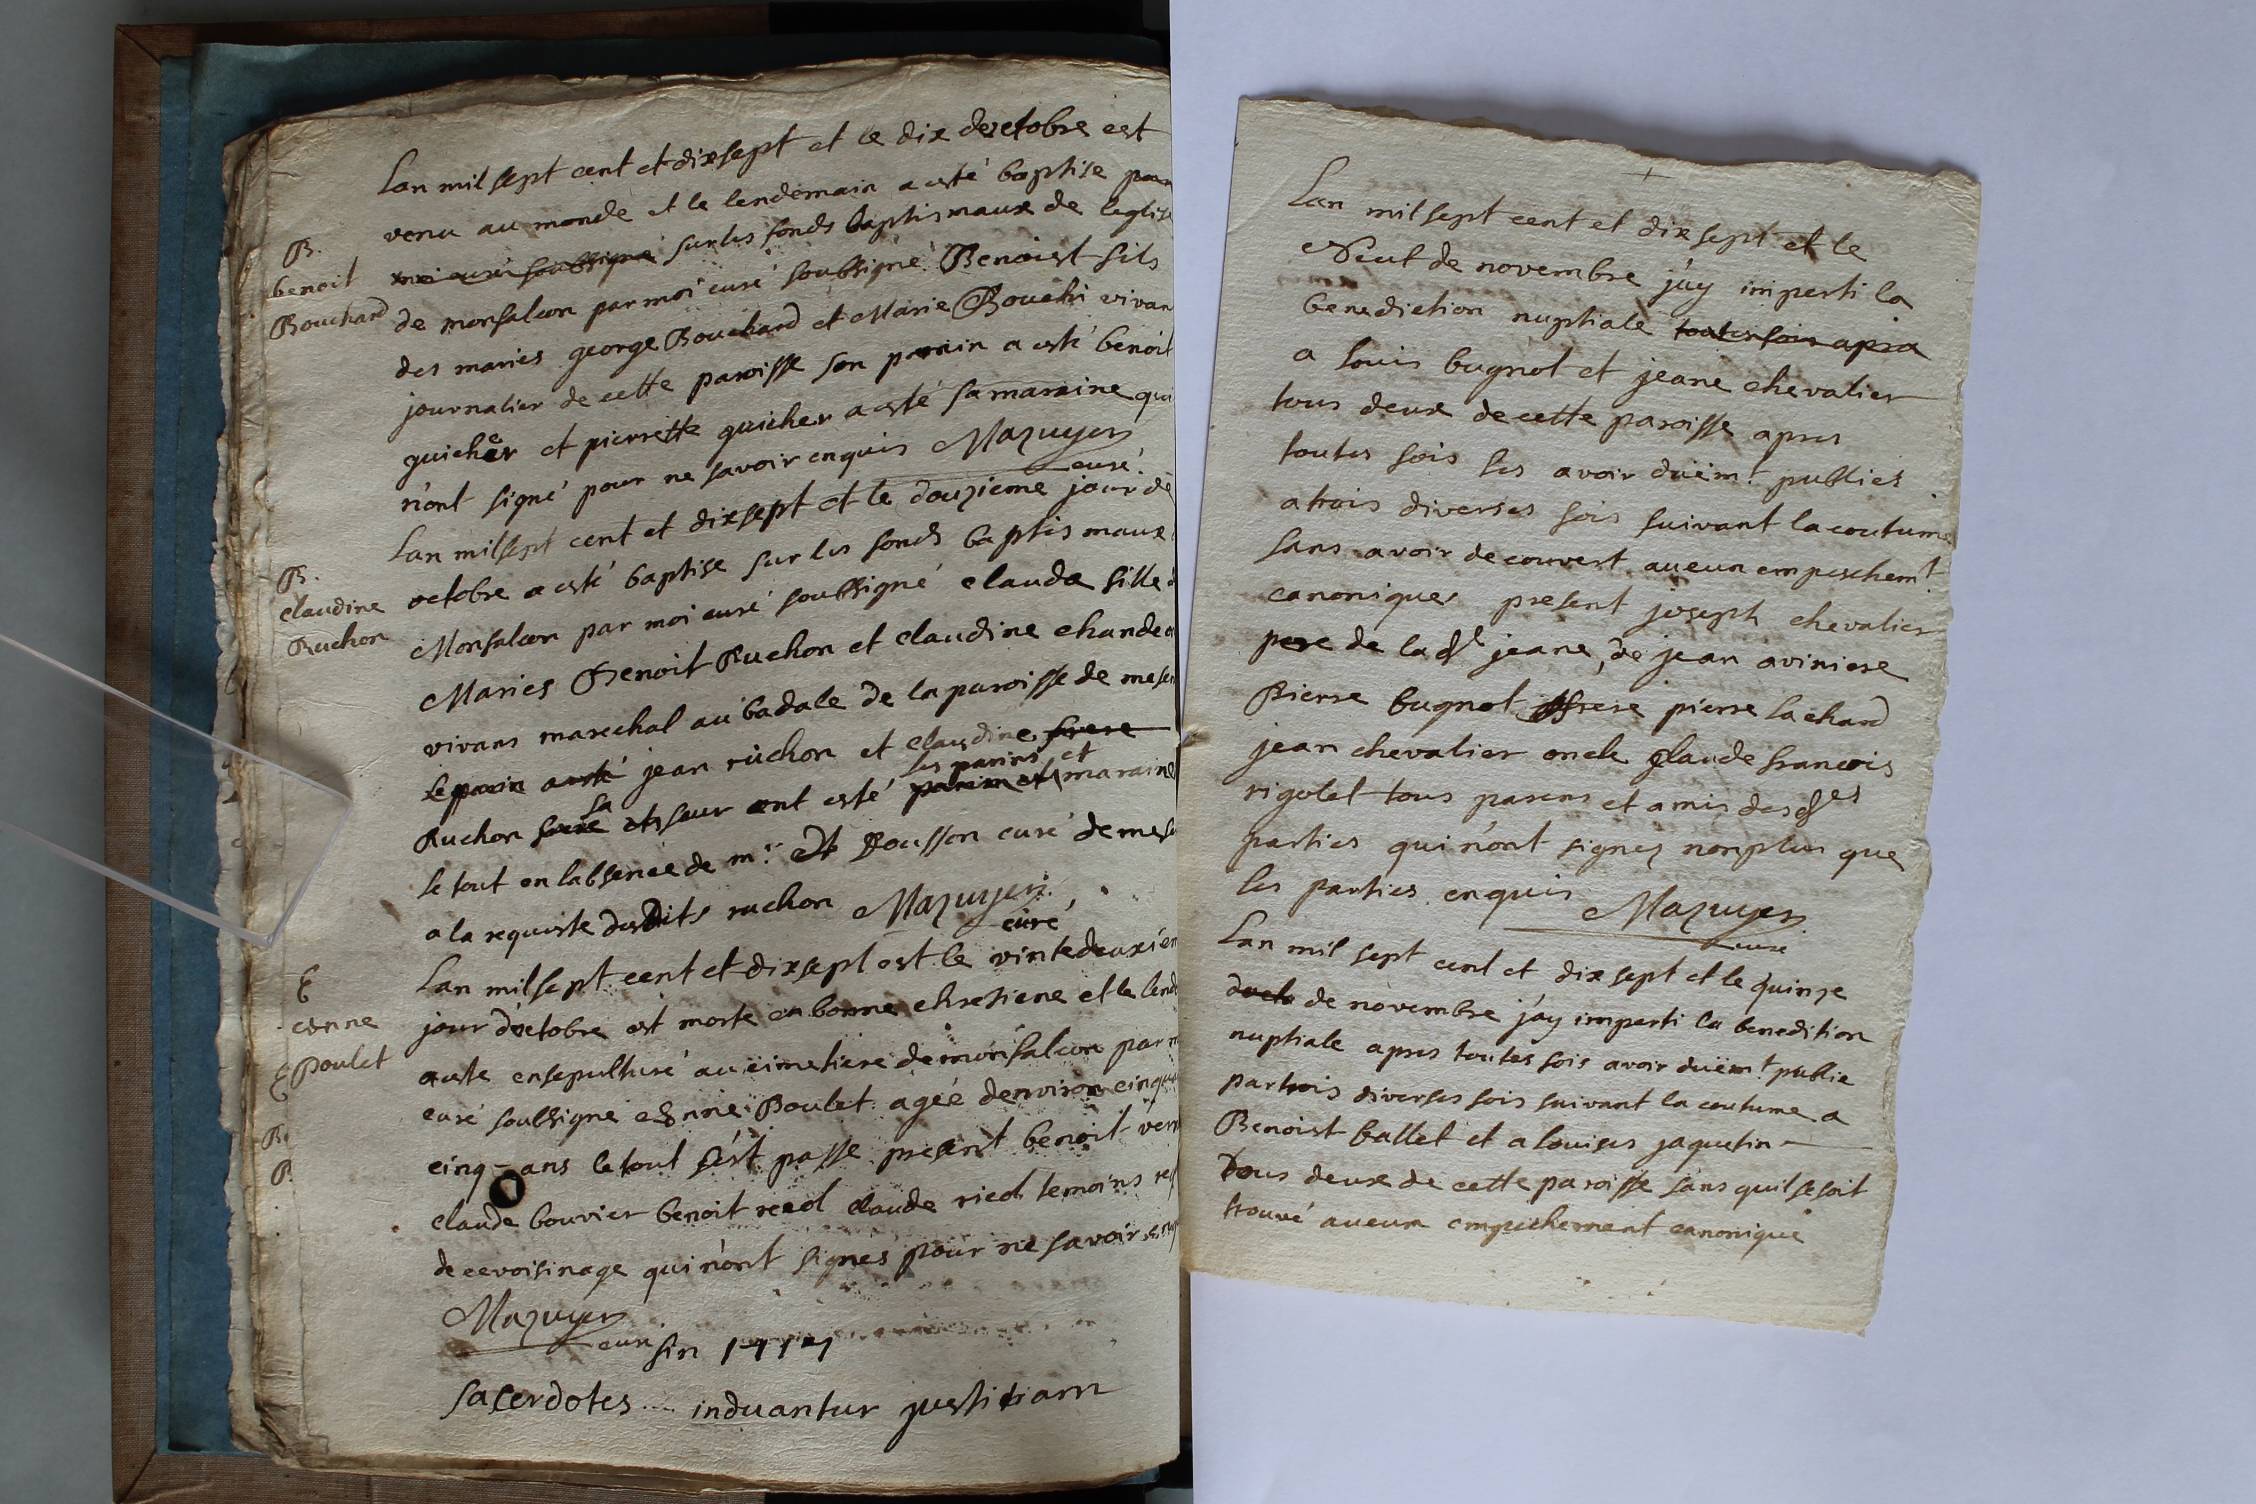 Lan mil sept cent et dixsept et le dix doctobre est
venu au monde et le lendemain a esté baptise par
moi curé soubsigné sur les fonds baptismaux de leglise
de monfalcon par moi curé soubsigné Benoist fils
des maries george Bouchard et Marie Bouchi vivan
journalier de cette paroisse son parain a esté benoit
guicher et pierrette guicher a esté sa maraine qui
n'ont signé pour ne savoir enquis Mazuyer
curé
B.
benoit
Bouchard
Lan mil sept cent et dixsept et le douzieme jour de
octobre a esté baptise sur les fonds baptismaux
Monfalcon par moi curé soubsigné clauda fille d
Maries Benoit Ruchon et claudine chande
vivans marechal au badale de la paroisse de mese
le parin a esté jean ruchon et claudine frere
Ruchon sa seur ont esté les parins et maraine
le tout en labsence de mr. Pousson curé de mes
a la requiste desdits ruchon Mazuyer
curé
B.
claudine
Ruchon
Lan mil sept cent et dixsept est le vintedeuxiem
jour d'octobre est morte en bonne chretiene et le lend
a este ensepulturé au cimetiere de monfalcon par m
curé soubsigne eenne Poulet agée denviron cinqu
cinq ans le tout s'est passe present benoit vern
claude bouvier benoit reeol claude ricol temoins
de ce voisinage qui n'ont signes pour ne savoir enq
Mazuyer
curé
E
eenne
Poulet
fin 1717
sacerdotes induantur justitiam
Lan mil sept cent et dix sept et le
Neuf de novembre j'ay imperti la
benediction nuptiale toutes fois apra
a louis bugnot et jeane chevalier
tous deux de cette paroisse apres
toutes fois les avoir duëmt. publies
a trois diverses fois suivant la coutume
sans avoir decouvert aucun empeschemt
canoniques present joseph chevalier
pere de la dte jeane, de jean aviniere
Pierre bugnot frere pierre lachard
jean chevalier oncle glaude francois
rigolet tous parens et amis des dtes
parties qui n'ont signez nonplus que
les parties enquis Mazuyer
curé
Lan mil sept cent et dix sept et le quinze
doct de novembre j'ay imparti la benedition
nuptiale apres toutes fois avoir duëmt. publie
par trois diverses fois suivant la coutume a
Benoist ballet et a louises jaquetin
Tous deux de cette paroisse sans quil se soit
trouvé aucun empechement canonique